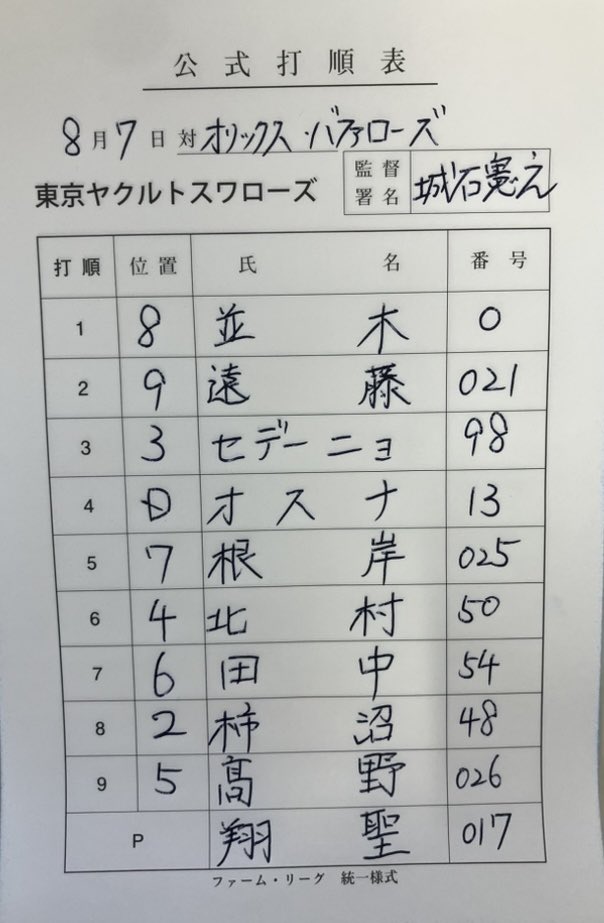 公式打順表
8月7日 対 オリックス・バファローズ
東京ヤクルトスワローズ 監督署名 城石憲之
打順 位置 氏名 番号
1 8 並木 0
2 9 遠藤 021
3 3 セデーニョ 98
4 D オスナ 13
5 7 根岸 025
6 4 北村 50
7 6 田中 54
8 2 柿沼 48
9 5 髙野 026
P 翔聖 017
ファーム・リーグ 統一様式